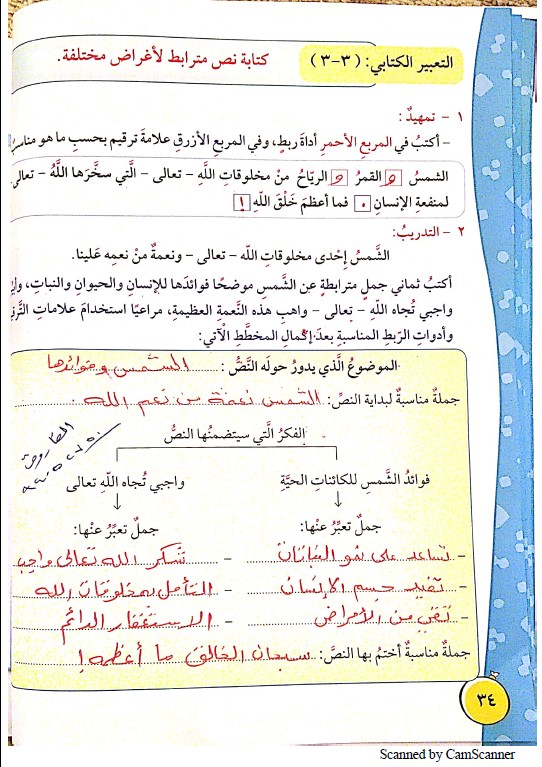 التعبير الكتابي: (٣-٣) كتابة نص مترابط لأغراض مختلفة.
١ - تمهيدٌ:
- أكتبُ في المربع الأحمرِ أداةَ ربطٍ، وفي المربع الأزرقِ علامةَ ترقيم بحسبِ ما هو مناسبٌ
الشمسُ و القمرُ و الرياحُ منْ مخلوقاتِ اللَّهِ - تعالى - الَّتي سخَّرَها اللَّهُ - تعالى
لمنفعةِ الإنسانِ . فما أعظمَ خَلْقَ اللَّهِ !
٢ - التدريبُ:
الشَّمسُ إحْدى مخلوقاتِ اللَّه - تعالى - ونعمةٌ منْ نعمِه عَلينا.
أكتبُ ثماني جملٍ مترابطةٍ عن الشَّمسِ موضحًا فوائدَها للإنسانِ والحيوانِ والنباتِ،
واجبي تُجاه اللَّهِ - تعالى - واهبِ هذه النَّعمةِ العظيمةِ، مراعيًا استخدامَ علاماتِ
وأدواتِ الرَّبطِ المناسبة بعدَ إكمالِ المخطَّطِ الْآتي:
الموضوعُ الَّذي يدورُ حولَه النَّصُّ: الشمس وفوائدها
جملةٌ مناسبةٌ لبداية النصِّ: الشمس نعمة من نعم الله.
الفكرُ الَّتي سيتضمنُها النصُّ
فوائدُ الشَّمسِ للكائناتِ الحيَّةِ
واجبي تُجاه اللَّهِ تعالى
جملٌ تعبِّرُ عنْها:
جملٌ تعبِّرُ عنْها:
- تساعد على نمو النباتات
- شكر الله تعالى واجب
- تفيد جسم الإنسان
- التأمل بمخلوقات الله
- تقي من الأمراض
- الاستغفار الدائم
جملةٌ مناسبةٌ أختمُ بها النصَّ: سبحان الخالق ما أعظمه!
٣٤
Scanned by CamScanner